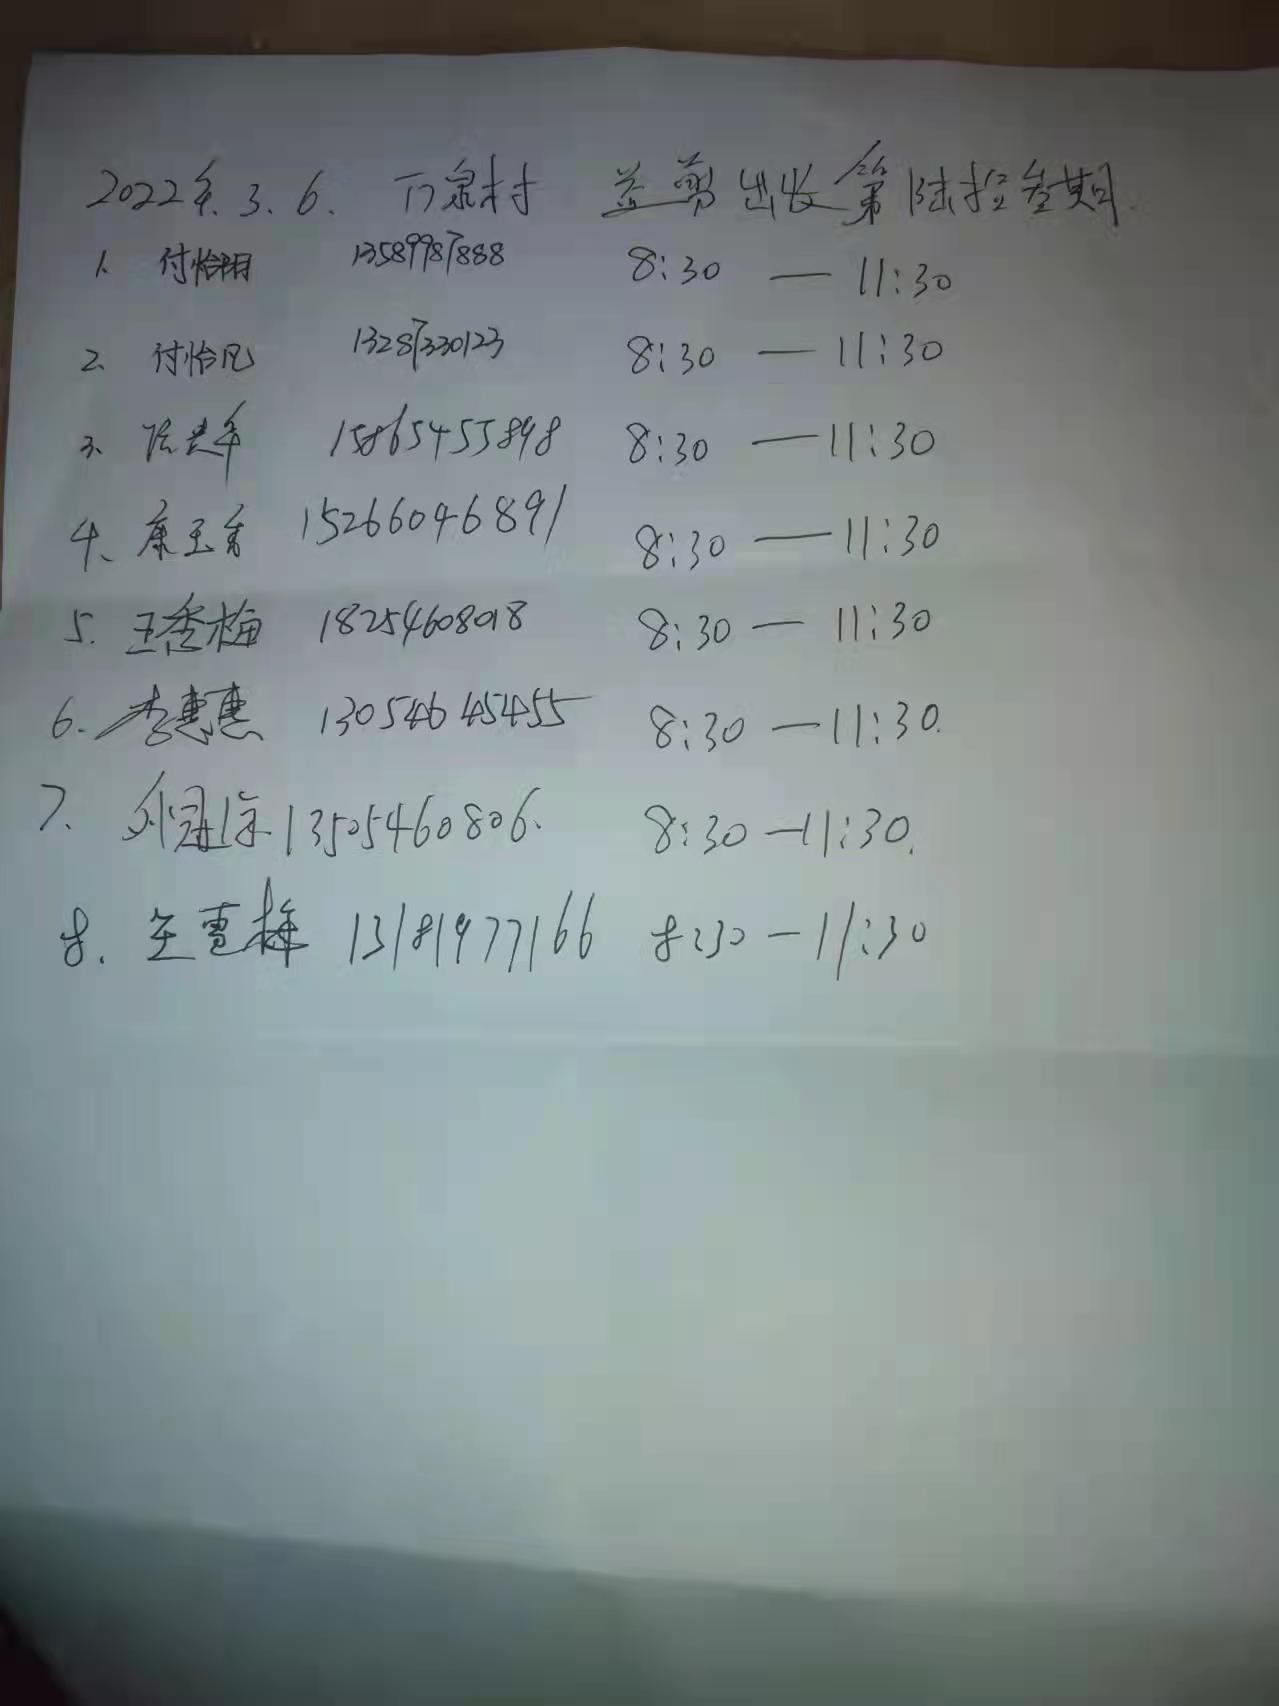 2022年.3.6. 万泉村 益剪出收第陆拾叁期.
1、付怡翔 13589987888 8:30 — 11:30
2、付怡凡 13287330123 8:30 — 11:30
3、 15865455898 8:30 — 11:30
4、康玉香 15266046891 8:30 — 11:30
5. 王秀梅 18254608018 8:30 — 11:30
6. 李惠惠 13054645455 8:30 — 11:30.
7. 13505460806. 8:30 — 11:30.
8. 13181977166 8:30 — 11:30